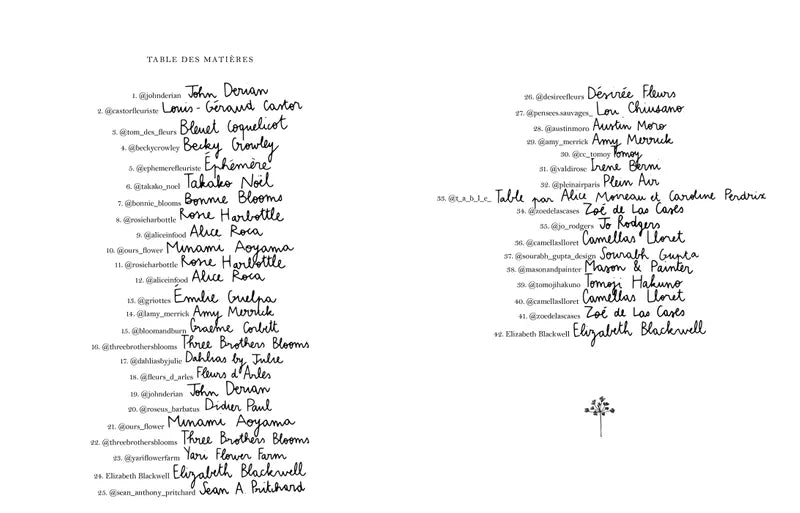 TABLE DES MATIÈRES
1. @johnderian John Derian
2. @castorfleuriste Louis-Géraud Castor
3. @tom_des_fleurs Bleuet Coquelicot
4. @beckycrowley Becky Crowley
5. @ephemerefleuriste Éphémère
6. @takako_noel Takako Noël
7. @bonnie_blooms Bonnie Blooms
8. @rosieharbottle Rosie Harbottle
9. @aliceinfood Alice Roca
10. @ours_flower Minami Aoyama
11. @rosieharbottle Rosie Harbottle
12. @aliceinfood Alice Roca
13. @griottes Émilie Guelpa
14. @amy_merrick Amy Merrick
15. @bloomandburn Graeme Corbett
16. @threebrothersblooms Three Brothers Blooms
17. @dahliasbyjulie Dahlias by Julie
18. @fleurs_d_arles Fleurs d'Arles
19. @johnderian John Derian
20. @roseus_barbatus Didier Paul
21. @ours_flower Minami Aoyama
22. @threebrothersblooms Three Brothers Blooms
23. @yariflowerfarm Yari Flower Farm
24. Elizabeth Blackwell Elizabeth Blackwell
25. @sean_anthony_pritchard Sean A. Pritchard
26. @desireefleurs Désirée Fleurs
27. @pensees.sauvages_ Lou Chiusano
28. @austinmoro Austin Moro
29. @amy_merrick Amy Merrick
30. @cc_tomoy Tomoy
31. @valdirose Irene Berni
32. @pleinairparis Plein Air
33. @t_a_b_l_e_ Table par Alice Moireau et Caroline Perdrix
34. @zoedelascases Zoé de Las Cases
35. @jo_rodgers Jo Rodgers
36. @camellaslloret Camellas Lloret
37. @sourabh_gupta_design Sourabh Gupta
38. @masonandpainter Mason & Painter
39. @tomojihakuno Tomoji Hakuno
40. @camellaslloret Camellas Lloret
41. @zoedelascases Zoé de Las Cases
42. Elizabeth Blackwell Elizabeth Blackwell